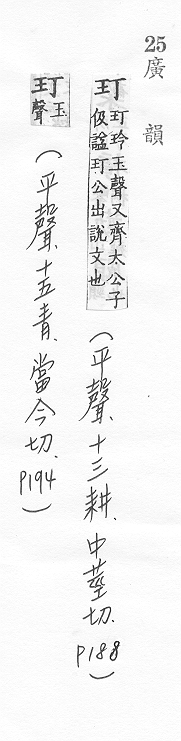 25 廣韻
玎 玎玲玉聲又齊太公子
伋諡玎公出說文也
(平聲、十三耕、中莖切、P188)
玎 玉聲
(平聲、十五青、當今切、P194)